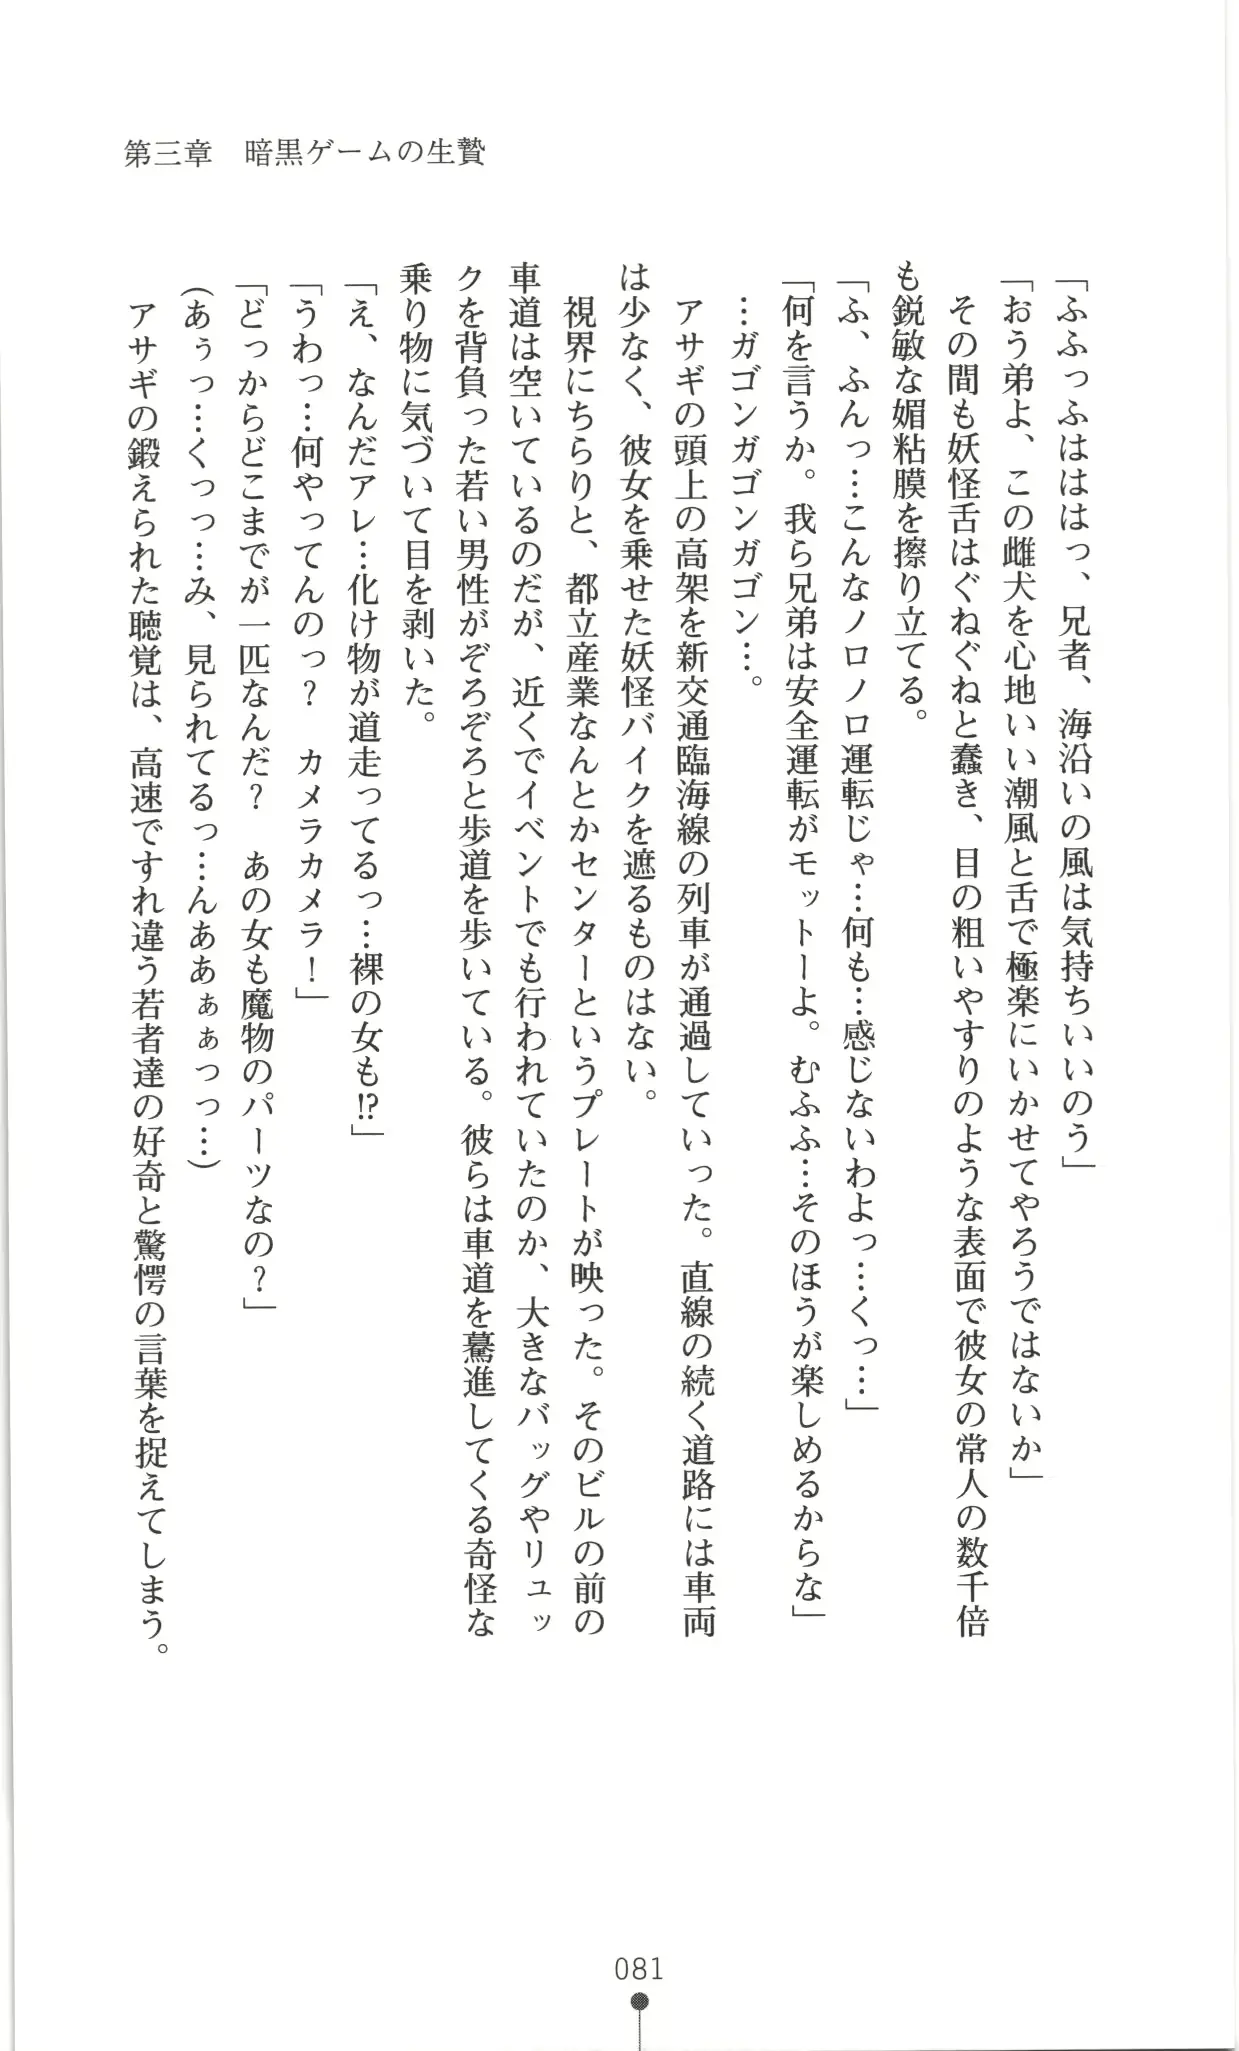 第三章　暗黒ゲームの生贄
「ふふっふはははっ、兄者、海沿いの風は気持ちいいのう」
「おう弟よ、この雌犬を心地いい潮風と舌で極楽にいかせてやろうではないか」
　その間も妖怪舌はぐねぐねと蠢き、目の粗いやすりのような表面で彼女の常人の数千倍
も鋭敏な媚粘膜を擦り立てる。
「ふ、ふんっ…こんなノロノロ運転じゃ…何も…感じないわよっ…くっ…」
「何を言うか。我ら兄弟は安全運転がモットーよ。むふふ…そのほうが楽しめるからな」
　…ガゴンガゴンガゴン…。
　アサギの頭上の高架を新交通臨海線の列車が通過していった。直線の続く道路には車両
は少なく、彼女を乗せた妖怪バイクを遮るものはない。
　視界にちらりと、都立産業なんとかセンターというプレートが映った。そのビルの前の
車道は空いているのだが、近くでイベントでも行われていたのか、大きなバッグやリュッ
クを背負った若い男性がぞろぞろと歩道を歩いている。彼らは車道を驀進してくる奇怪な
乗り物に気づいて目を剥いた。
「え、なんだアレ…化け物が道走ってるっ…裸の女も!?」
「うわっ…何やってんのっ？　カメラカメラ！」
「どっからどこまでが一匹なんだ？　あの女も魔物のパーツなの？」
(あぅっ…くっっ…み、見られてるっ…んああぁぁっっ…)
　アサギの鍛えられた聴覚は、高速ですれ違う若者達の好奇と驚愕の言葉を捉えてしまう。
081